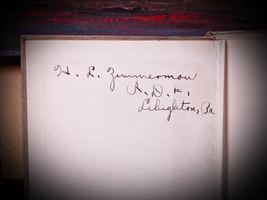 H. L. Zimmerman
R. D. 4.
Lehighton, Pa